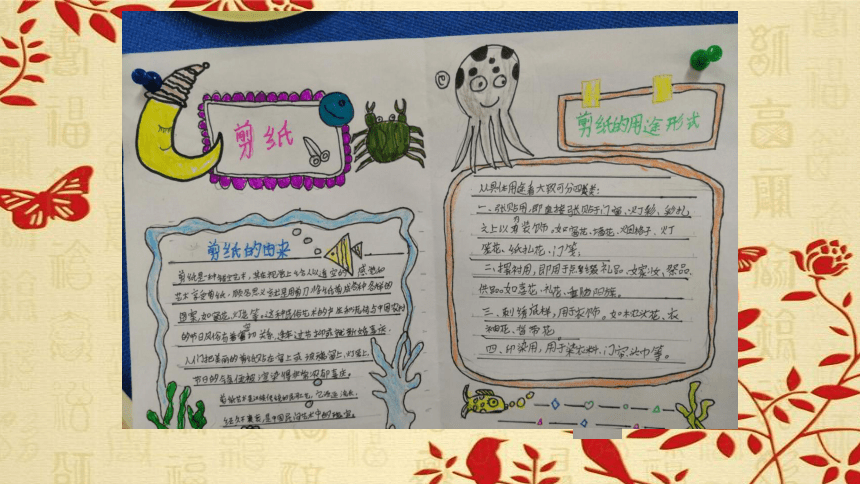 剪纸
剪纸的由来
剪纸是一种镂空艺术，其在视觉上给人以透空的感觉和
艺术享受剪纸，顾名思义就是用剪刀将纸剪成各种各样的
图案，如窗花、
的节日风俗有着密切关系，逢年过节抑或新婚喜庆
人们把美丽的剪纸贴在窗上或玻璃窗上、灯笼上，
节日的气氛便被渲染得非常浓郁喜庆。
经久不衰，是中国民间艺术中的瑰宝。
剪纸的用途形式
从具体用途看大致可分四类：
一、张贴用，即直接张贴于门窗、灯彩、彩扎
之上以为装饰，如窗花、墙花、烟格子、灯
笼花、纸扎花、门笺，
二、摆衬用，即用于点缀礼品、嫁妆、祭品、
供品。如喜花、礼花、
三、刺绣底样，用于衣饰。如枕头花、衣
袖花、背带花
四、印染用，用于染衣料、门帘、头巾等。